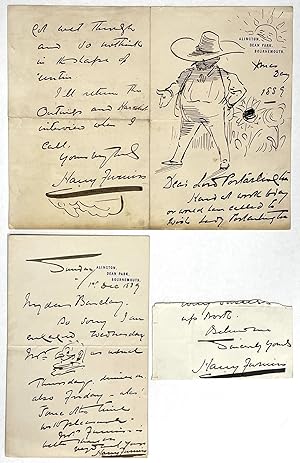 Got wet through
and so nothing
in the shape of
I'll return the
Outings and
interview when I
call.
Yours very truly
Harry Furniss
ALINGTON,
DEAN PARK,
BOURNEMOUTH.
Xmas
Day
1889
Dear Lord Portarlington
Hard at work today
or would have called to
wish Lady Portarlington
Sunday
ALINGTON,
DEAN PARK,
BOURNEMOUTH.
1st Dec 1889
My dear Barclay.
So sorry I am
engaged Wednesday
as usual
Thursday, dinner
also Friday - alas!
Some other time
with pleasure
Mrs Furniss is
Yours
Harry Furniss
Believe me
Sincerely Yours
Harry Furniss